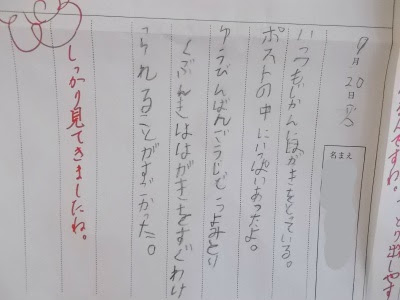 9月20日
名まえ
いつもじかんにはがきをとっている。
ポストの中にいっぱいあったよ。
ゆうびんばんごうじどうよみとり
くぶんきははがきをすぐわけ
られることがすごかった。
しっかり見てきましたね。
とり出しやす